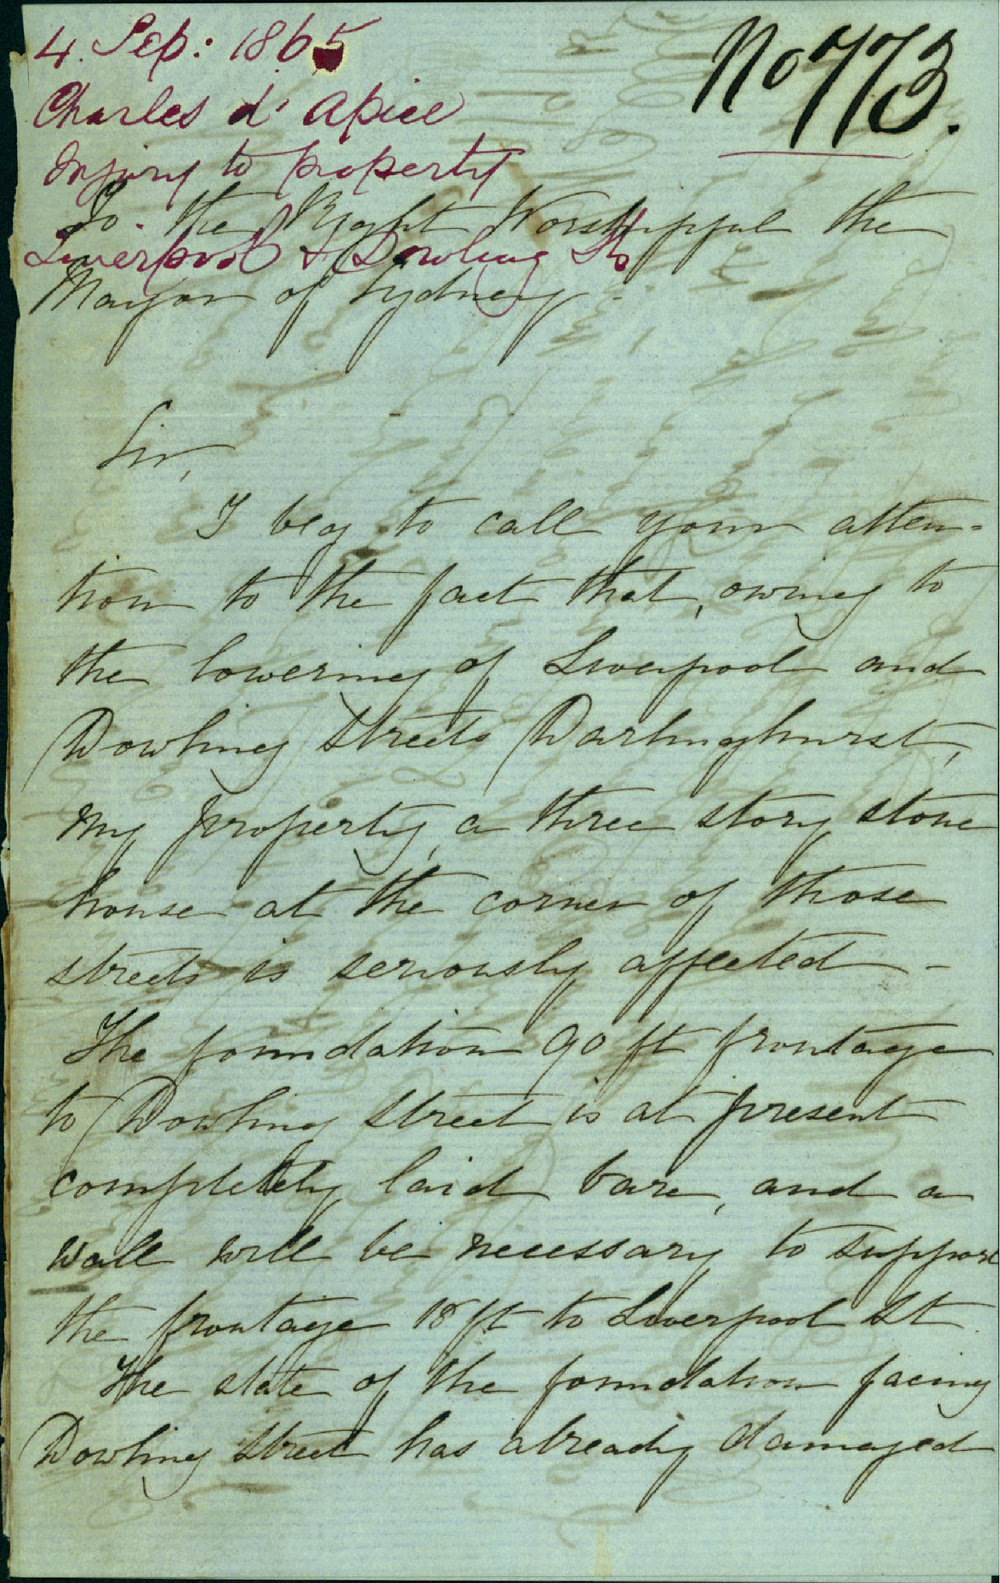 4. Sep: 1865
No 773.
Charles d'Apice
Injury to property
To the Right Worshipful the
Liverpool & Dowling Sts
Mayor of Sydney.
Sir,
I beg to call your atten=
tion to the fact that, owing to
the lowering of Liverpool and
Dowling Streets Darlinghurst,
my property, a three story stone
house at the corner of those
streets is seriously affected -
The foundation 90 ft frontage
to Dowling Street is at present
completely laid bare, and a
wall will be necessary to support
the frontage 18 ft to Liverpool St.
The state of the foundation facing
Dowling Street has already damaged